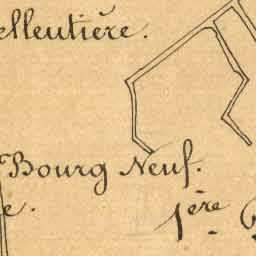 elleutière.
Bourg Neuf.
e.
1ère